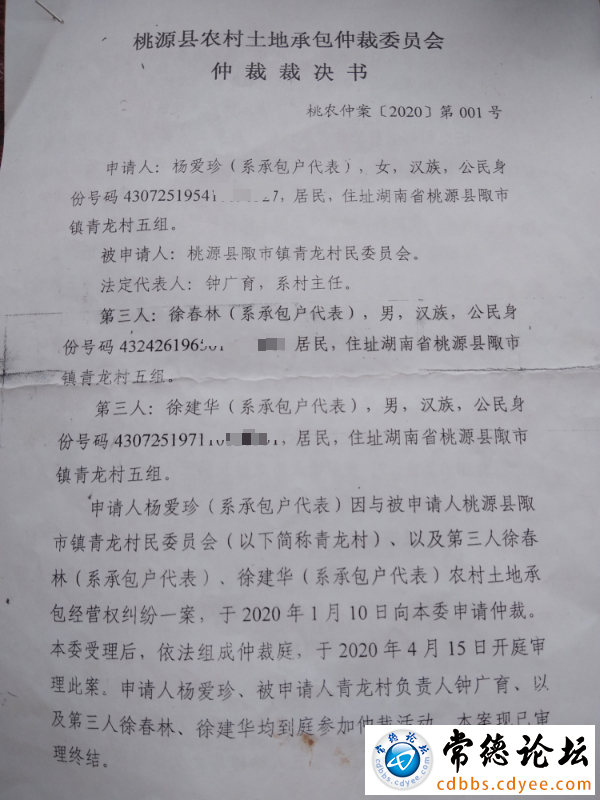 桃源县农村土地承包仲裁委员会
仲裁裁决书
桃农仲案〔2020〕第 001 号
申请人：杨爱珍（系承包户代表），女，汉族，公民身
份号码 4307251954 27，居民，住址湖南省桃源县陬市
镇青龙村五组。
被申请人：桃源县陬市镇青龙村民委员会。
法定代表人：钟广育，系村主任。
第三人：徐春林（系承包户代表），男，汉族，公民身
份号码 432426196 居民，住址湖南省桃源县陬市
镇青龙村五组。
第三人：徐建华（系承包户代表），男，汉族，公民身
份号码 430725197110 ，居民，住址湖南省桃源县陬市
镇青龙村五组。
申请人杨爱珍（系承包户代表）因与被申请人桃源县陬
市镇青龙村民委员会（以下简称青龙村）、以及第三人徐春
林（系承包户代表）、徐建华（系承包户代表）农村土地承
包经营权纠纷一案，于 2020 年 1 月 10 日向本委申请仲裁。
本委受理后，依法组成仲裁庭，于 2020 年 4 月 15 日开庭审
理此案。申请人杨爱珍、被申请人青龙村负责人钟广育、以
及第三人徐春林、徐建华均到庭参加仲裁活动。本案现已审
理终结。
常德论坛
cdbbs.cdyee.com